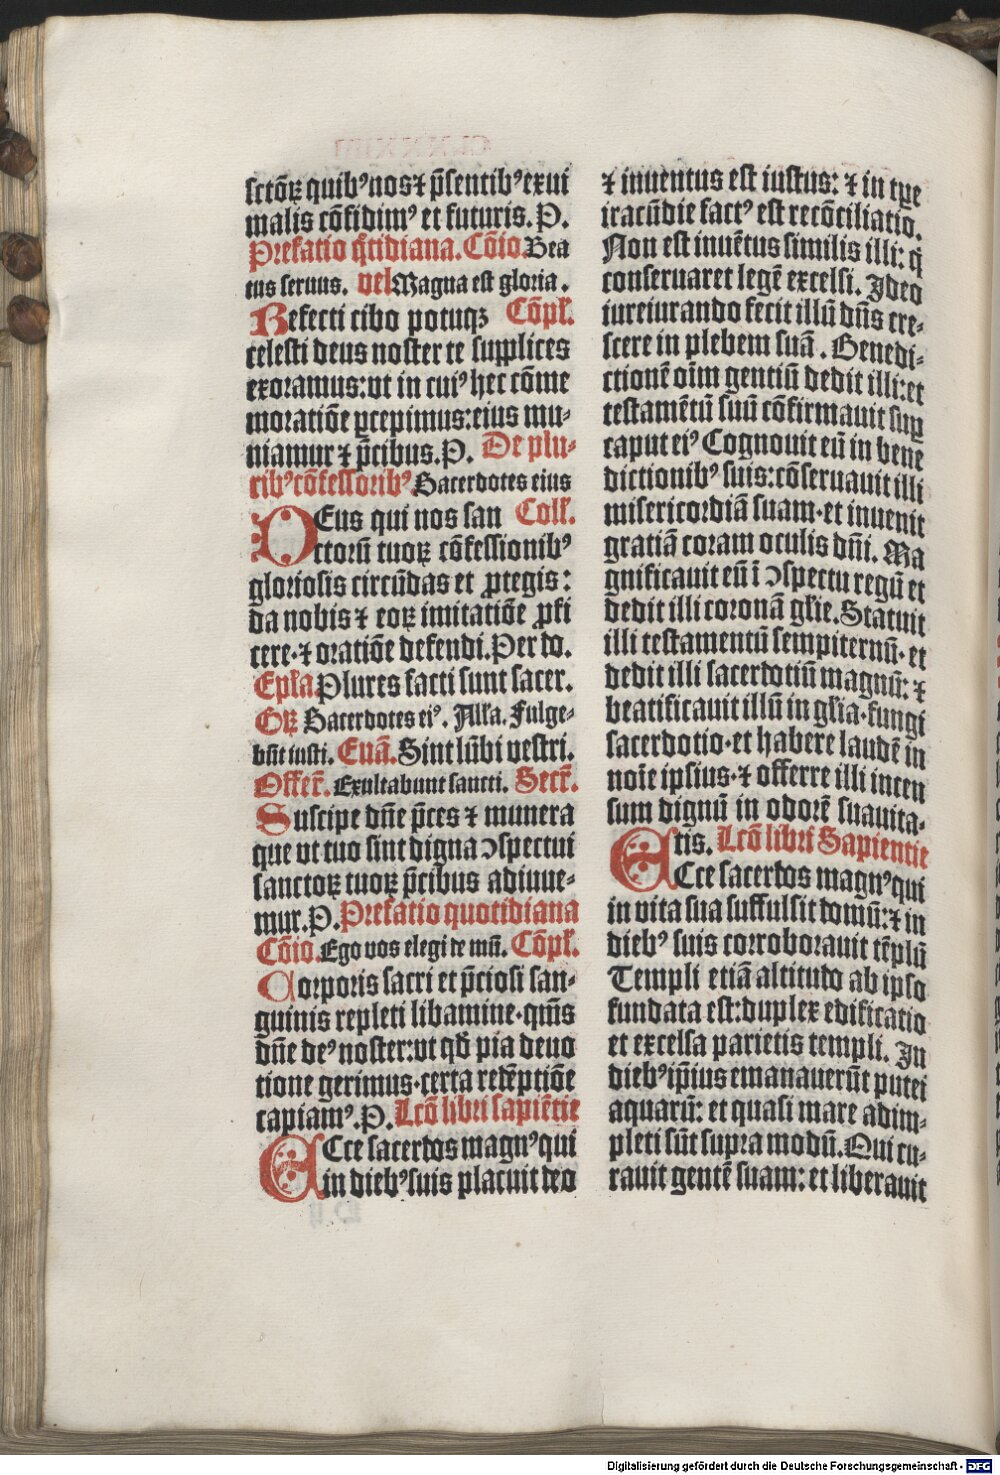 sctoꝝ quibꝰ nos ⁊ p̄sentibꝰ exui
malis cōfidimꝰ et futuris. P.
Prefatio q̄tidiana. Cōio. Bea
tus seruus. vel Magna est gloria.
Refecti cibo potuqꝫ Cōpl̄.
celesti deus noster te supplices
exoramus: vt in cuiꝰ hec cōme
moratiōe ꝑcepimus: eius mu-
niamur ⁊ p̄cibus. P. De plu-
ribꝰ cōfessoribꝰ. Sacerdotes eius
DEus qui nos san Coll̄.
ctorū tuoꝝ cōfessionibꝰ
gloriosis circūdas et ꝓtegis:
da nobis ⁊ eoꝝ imitatiōe ꝓfi
cere· ⁊ oratiōe defendi. Per do.
Ep̄la Plures facti sunt sacer.
Gꝝ Sacerdotes eiꝰ. All̄a. Fulge-
būt iusti. Euā. Sint lūbi vestri.
Offer̄. Exultabunt sancti. Secr̄.
Suscipe dn̄e p̄ces ⁊ munera
que vt tuo sint digna ↄspectui
sanctoꝝ tuoꝝ p̄cibus adiuue-
mur. P. Prefatio quotidiana
Cōio. Ego vos elegi de mū. Cōpl̄.
Corporis sacri et p̄ciosi san-
guinis repleti libamine· qm̄s
dn̄e deꝰ noster: vt qd̄ pia deuo
tione gerimus· certa redēptiōe
capiamꝰ. P. Lcō libri sapiētie
ECce sacerdos magnꝰ qui
in diebꝰ suis placuit deo
⁊ inuentus est iustus: ⁊ in tꝑe
iracūdie factꝰ est recōciliatio.
Non est inuētus similis illi: q̄
conseruaret legē excelsi. Ideo
iureiurando fecit illū dn̄s cre-
scere in plebem suā. Benedi-
ctionē oīm gentiū dedit illi: et
testamētū suū cōfirmauit suꝑ
caput eiꝰ Cognouit eū in bene
dictionibꝰ suis: cōseruauit illi
misericordiā suam· et inuenit
gratiā coram oculis dn̄i. Ma
gnificauit eū ī ↄspectu regū et
dedit illi coronā gl̄ie. Statuit
illi testamentū sempiternū· et
dedit illi sacerdotiū magnū: ⁊
beatificauit illū in gl̄ia· fungi
sacerdotio· et habere laudē in
noīe ipsius· ⁊ offerre illi incen
sum dignū in odorē suauita-
tis. Lcō libri Sapientie
ECce sacerdos magnꝰ qui
in vita sua suffulsit domū: ⁊ in
diebꝰ suis corroborauit tēplū
Templi etiā altitudo ab ipso
fundata est: duplex edificatio
et excelsa parietis templi. In
diebꝰ ip̄ius emanauerūt putei
aquarū: et quasi mare adim-
pleti sūt supra modū. Qui cu-
rauit gentē suam: et liberauit
Digitalisierung gefördert durch die Deutsche Forschungsgemeinschaft - DFG